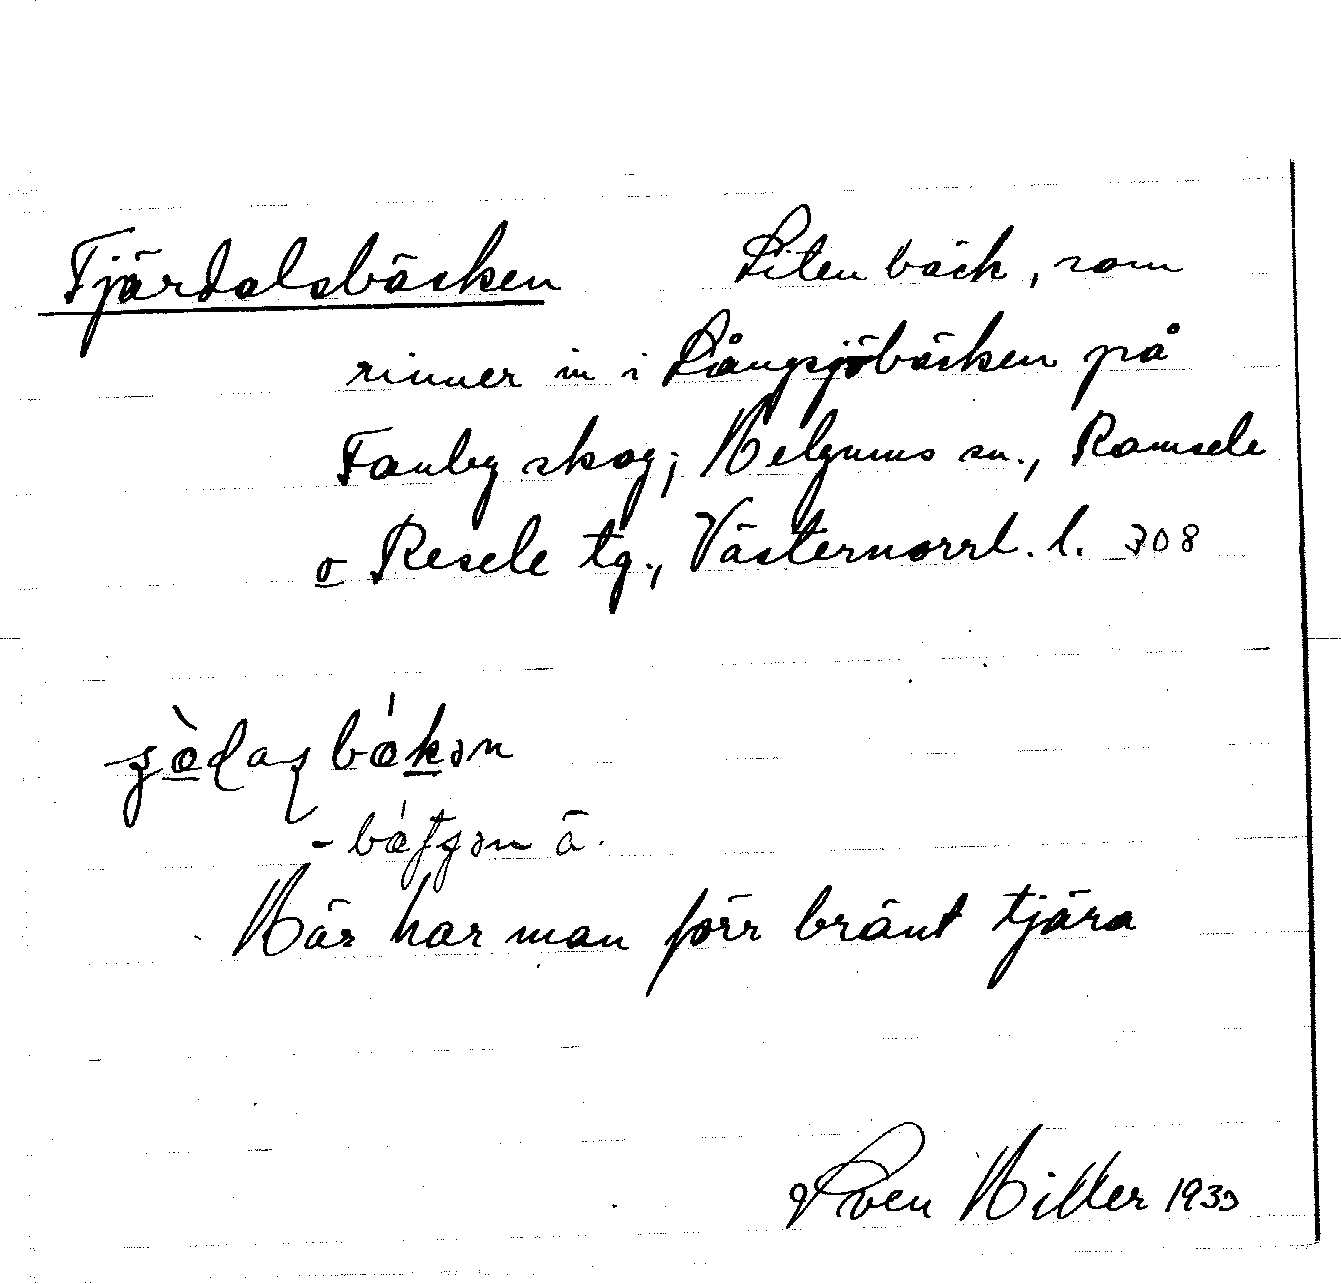 Tjärdalsbäcken Liten bäck, som
rinner in i Långsjöbäcken på
Fanby skog; Helgums sn., Ramsele
o Resele tg., Västernorrl. l. 308
-bátʂən ä.
Här har man förr bränt tjära
Sven Hiller 1933